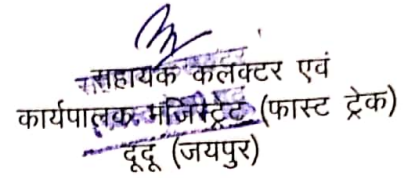 सहायक कलक्टर एवं
कार्यपालक मजिस्ट्रेट (फास्ट ट्रेक)
दूदू (जयपुर)